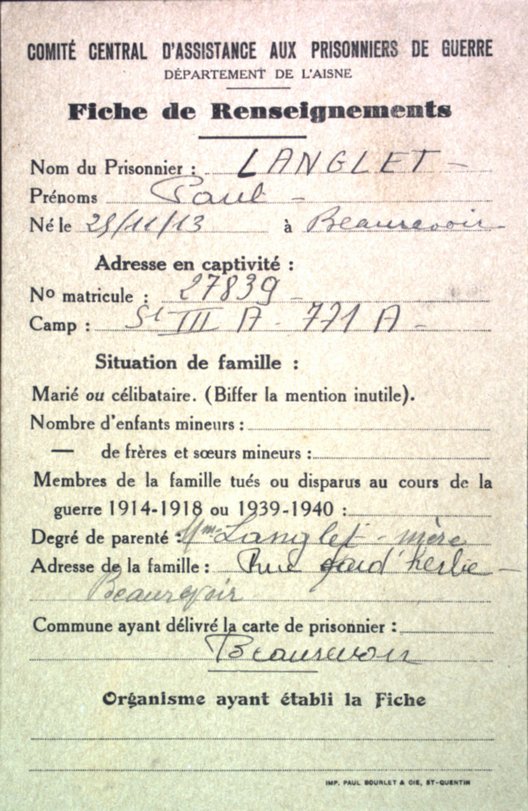 COMITÉ CENTRAL D'ASSISTANCE AUX PRISONNIERS DE GUERRE
DÉPARTEMENT DE L'AISNE
Fiche de Renseignements
Nom du Prisonnier : LANGLET -
Prénoms Paul -
Né le 25/11/13 à Beaurevoir
Adresse en captivité :
No matricule : 27839 -
Camp : St III A - 771 A -
Situation de famille :
Marié ou célibataire. (Biffer la mention inutile).
Nombre d'enfants mineurs :
— de frères et sœurs mineurs :
Membres de la famille tués ou disparus au cours de la
guerre 1914-1918 ou 1939-1940 :
Degré de parenté : Mme Langlet - mère
Adresse de la famille : Rue d'herbe -
Beaurevoir
Commune ayant délivré la carte de prisonnier :
Beaurevoir
Organisme ayant établi la Fiche
IMP. PAUL BOURLET & CIE, ST-QUENTIN